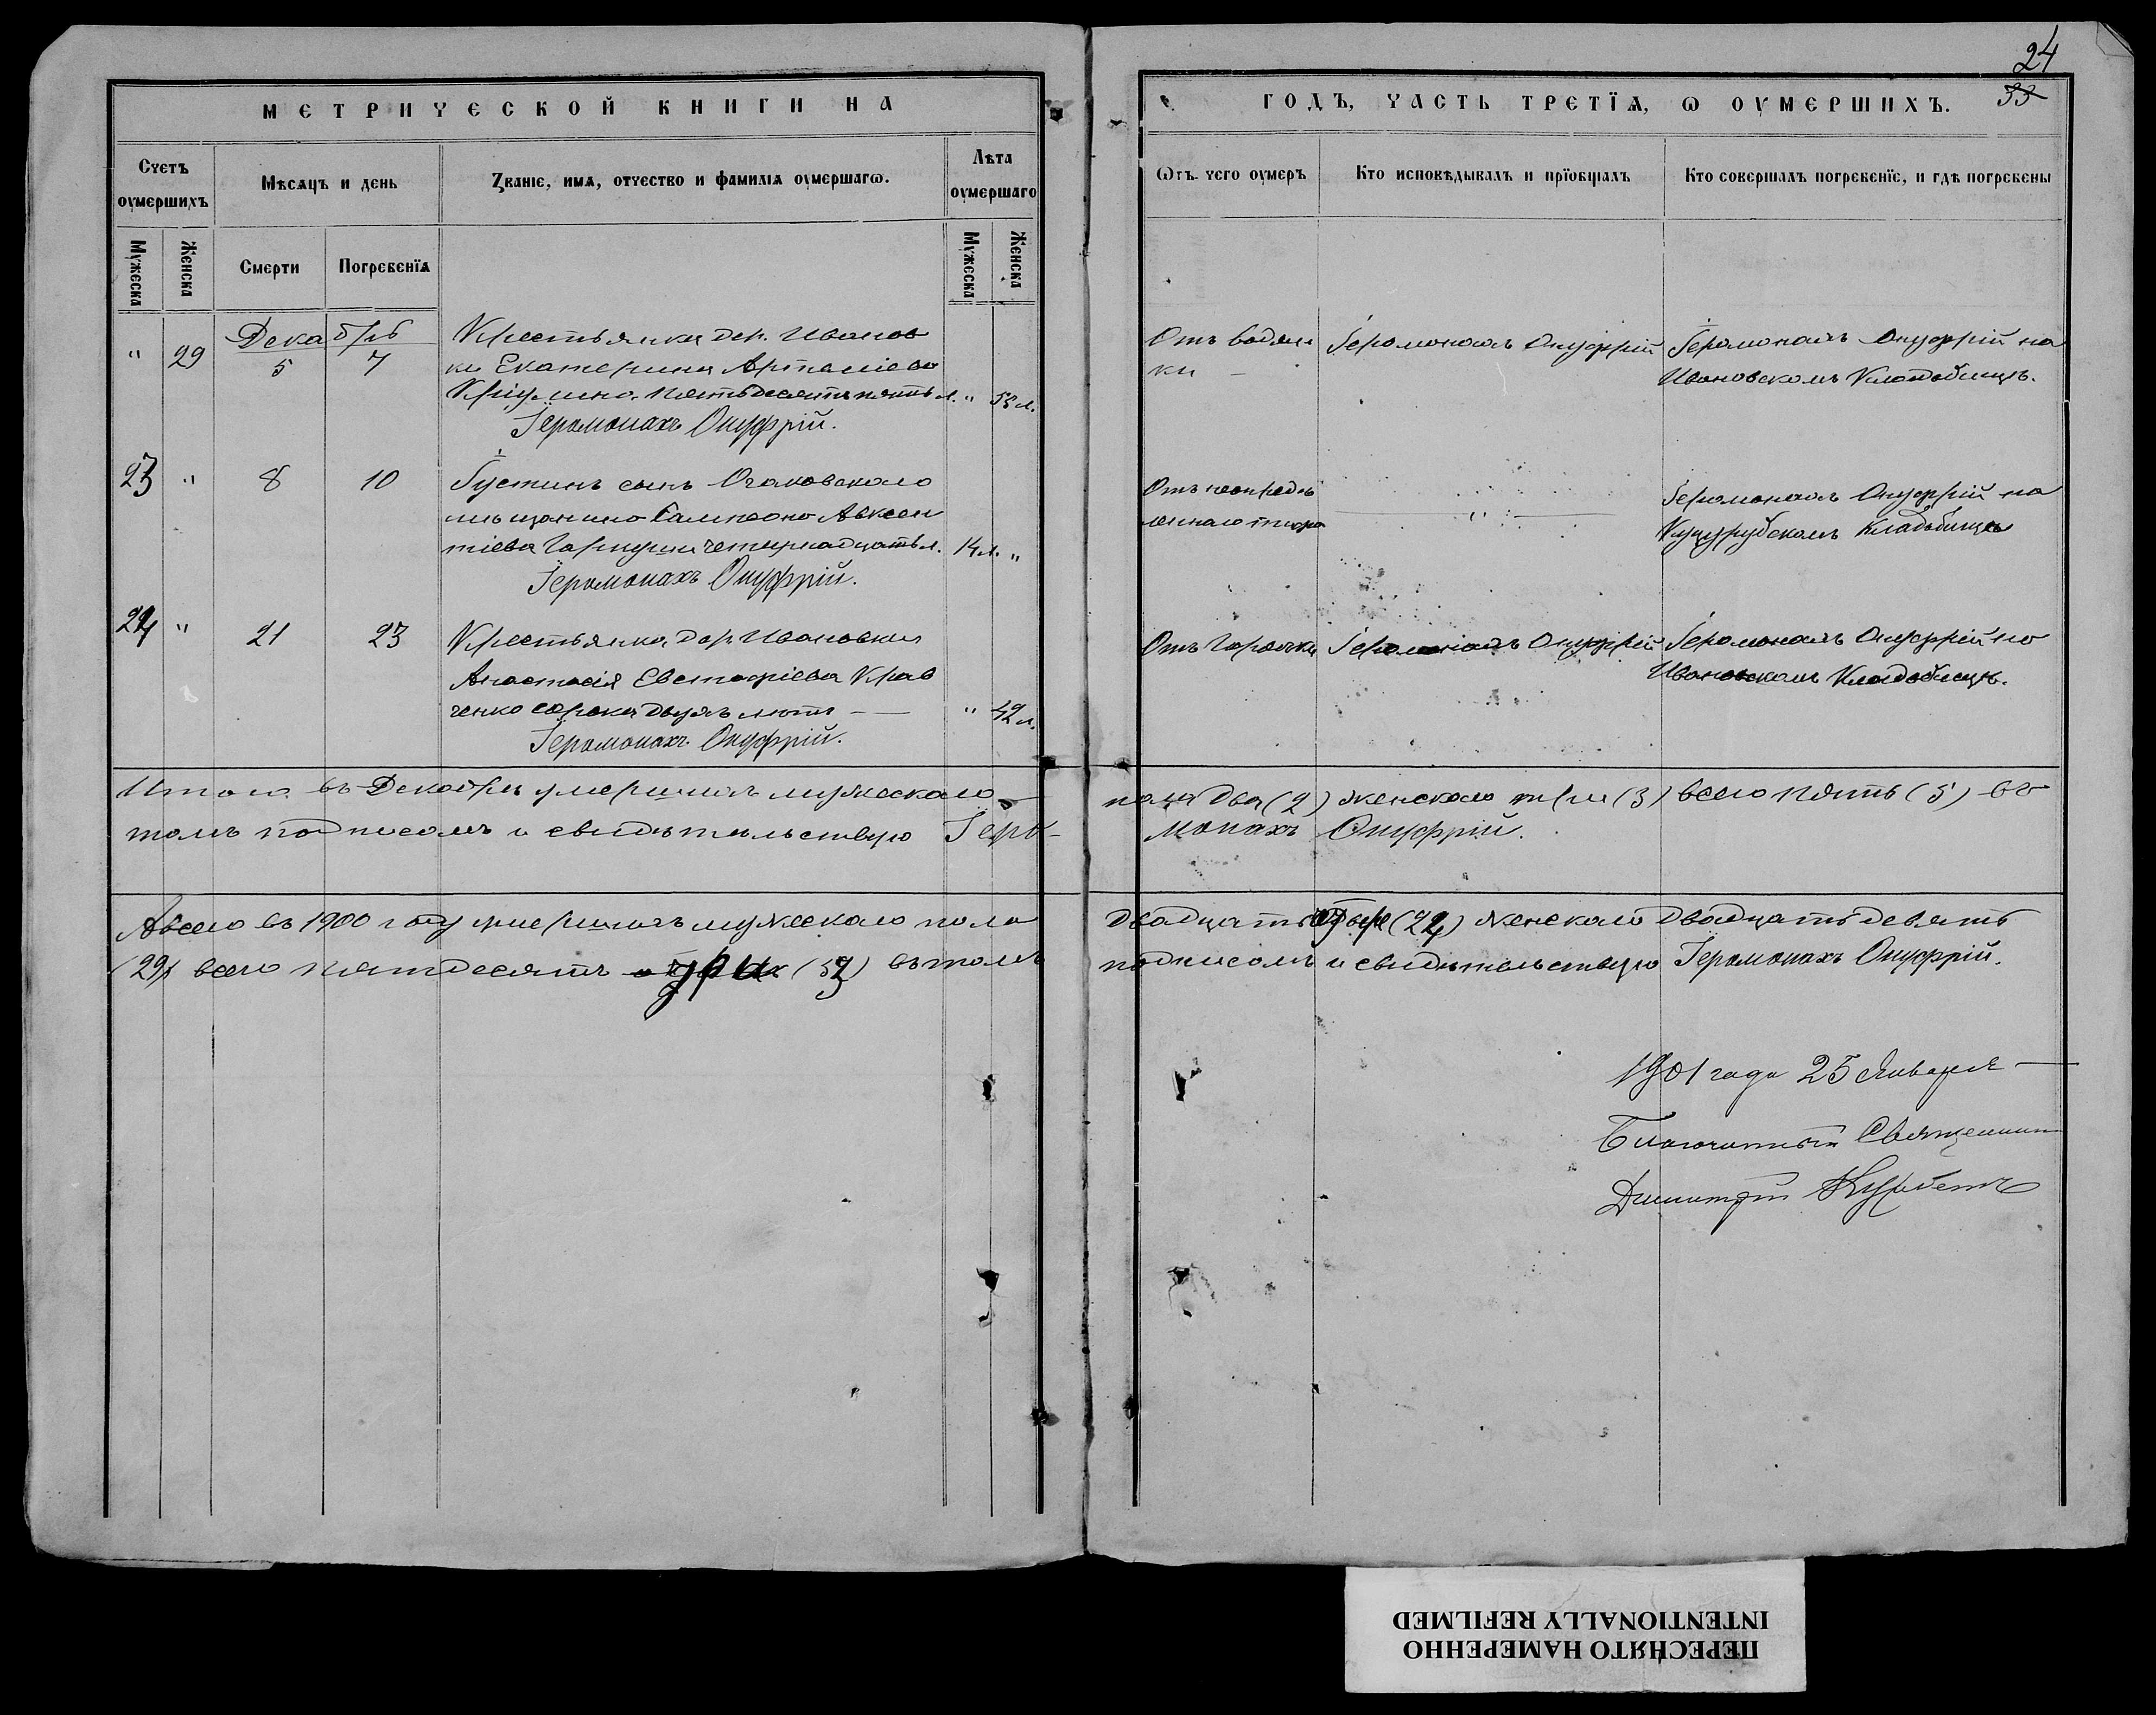 24
33
МЕТРИЧЕСКОЙ КНИГИ НА
ГОДЪ, ЧАСТЬ ТРЕТЇѦ, Ѡ ОУМЕРШИХЪ.
Счетъ оумершихъ
Мѣсѧцъ и день
Званїе, имѧ, отчество и фамилїѧ оумершагѡ.
Лѣта оумершаго
Ѡтъ чего оумеръ
Кто исповѣдывалъ и прїобщалъ
Кто совершалъ погребенїе, и гдѣ погребены
Мужеска
Женска
Смерти
Погребенїѧ
Мужеска
Женска
Декабрь
" 29 5 7
Крестьянка дер. Иванов
ки Екатерина Артеміева
пятьдесятъ пять л. "
Іеромонахъ Онуфрій.
Отъ водян
ки
Іеромонахъ Онуфрій
Іеромонахъ Онуфрій на
Ивановскомъ кладбищѣ.
23 " 8 10
Іустинъ сынъ Очаковскаго
мѣщанина Сампсона Авксен
тіева четырнадцать л. 14 л. "
Іеромонахъ Онуфрій.
Отъ неопредѣ
леннаго
"
Іеромонахъ Онуфрій на
Куцурубскомъ кладбищѣ
24 " 21 23
Крестьянка дер. Ивановки
Анастасія Евстафіева Крав
ченко сорока двухъ лѣтъ " 42 л.
Іеромонахъ Онуфрій.
Отъ горячки
Іеромонахъ Онуфрій
Іеромонахъ Онуфрій на
Ивановскомъ кладбищѣ.
Итого въ Декабрѣ умершихъ мужескаго
пола два (2) женскаго три (3) всего пять (5) въ
томъ подписомъ и свидѣтельствую Іеро-
монахъ Онуфрій.
А всего въ 1900 году умершихъ мужескаго пола
двадцать (24) женскаго двадцать девять
(29) всего пятдесятъ три (53) въ томъ
подписомъ и свидѣтельствую Іеромонахъ Онуфрій.
1901 года 25 Января
Благочинный Священник
Димитрій
ПЕРЕСНЯТО НАМЕРЕННО
INTENTIONALLY REFILMED